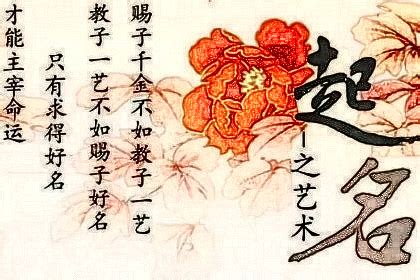 起名
之艺术
赐子千金不如教子一艺
教子一艺不如赐子好名
只有求得好名
才能主宰命运